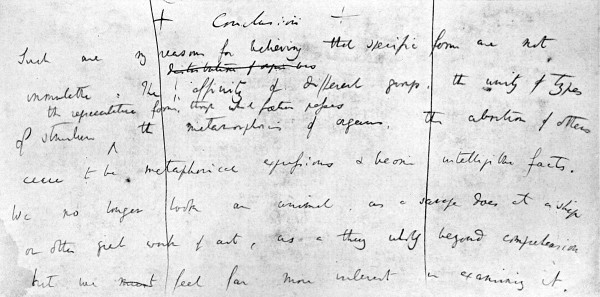 Conclusion
Such are my reasons for believing that specific forms are not
immutable. The affinity of different groups, the unity of types
the representative forms, those which
of structure the metamorphosis of organs, the abortion of others
cease to be metaphorical expressions & become intelligible facts.
We no longer look an animal as a savage does at a ship
or other great work of art, as a thing wholly beyond comprehension
but we feel far more interest in examining it.